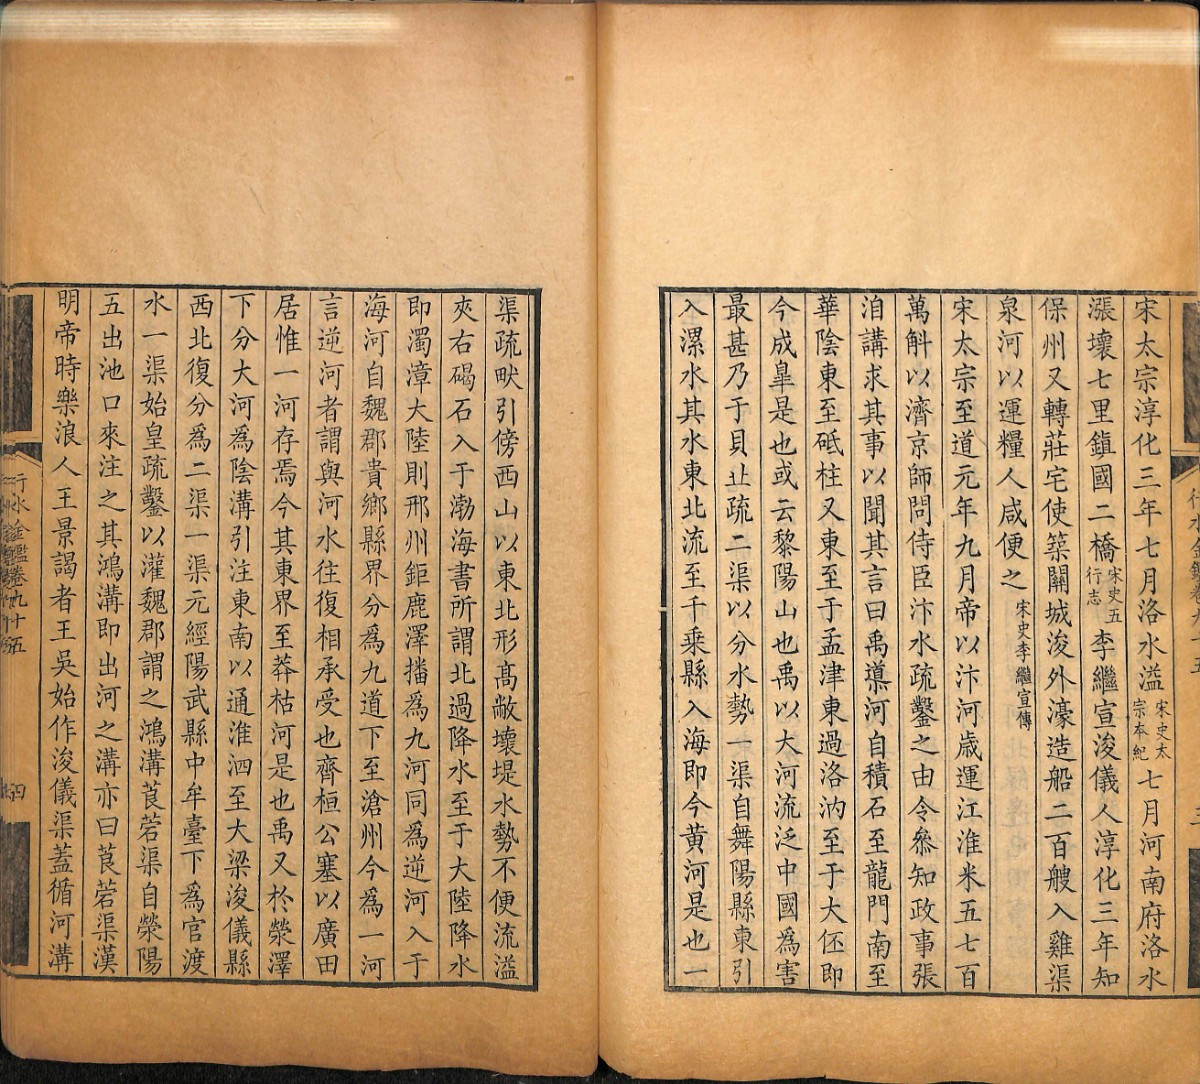 宋太宗淳化三年七月洛水溢宋史太宗本紀七月河南府洛水
漲壞七里鎮國二橋宋史五行志李繼宣浚儀人淳化三年知
保州又轉莊宅使築關城浚外濠造船二百艘入雞渠
泉河以運糧人咸便之宋史李繼宣傳
宋太宗至道元年九月帝以汴河歲運江淮米五七百
萬斛以濟京師問侍臣汴水疏鑿之由令參知政事張
洎講求其事以聞其言曰禹導河自積石至龍門南至
華陰東至砥柱又東至于孟津東過洛汭至于大伾即
今成臯是也或云黎陽山也禹以大河流泛中國為害
最甚乃于貝丘疏二渠以分水勢一渠自舞陽縣東引
入漯水其水東北流至千乘縣入海即今黄河是也一
渠疏畎引傍西山以東北形髙敝壞堤水勢不便流溢
夾右碣石入于渤海書所謂北過降水至于大陸降水
即濁漳大陸則邢州鉅鹿澤播為九河同為逆河入于
海河自魏郡貴鄉縣界分為九道下至滄州今為一河
言逆河者謂與河水往復相承受也齊桓公塞以廣田
居惟一河存焉今其東界至莽枯河是也禹又於滎澤
下分大河為陰溝引注東南以通淮泗至大梁浚儀縣
西北復分為二渠一渠元經陽武縣中牟臺下為官渡
水一渠始皇疏鑿以灌魏郡謂之鴻溝莨菪渠自滎陽
五出池口來注之其鴻溝即出河之溝亦曰莨菪渠漢
明帝時樂浪人王景謁者王吳始作浚儀渠蓋循河溝
行水金鑑卷九十五
四